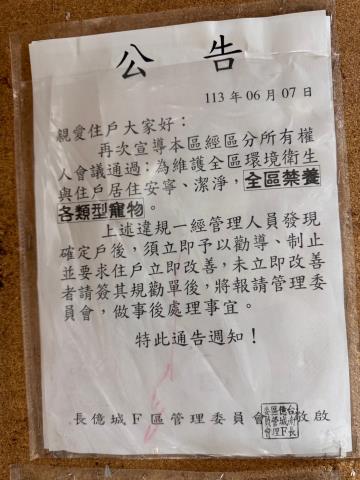 公告
113 年 06 月 07 日
親愛住戶大家好：
再次宣導本區經區分所有權
人會議通過：為維護全區環境衛生
與住戶居住安寧、潔淨，全區禁養
各類型寵物。
上述違規一經管理人員發現
確定戶後，須立即予以勸導、制止
並要求住戶立即改善，未立即改善
者請簽其規勸單後，將報請管理委
員會，做事後處理事宜。
特此通告週知！
長億城F區管理委員會 敬啟